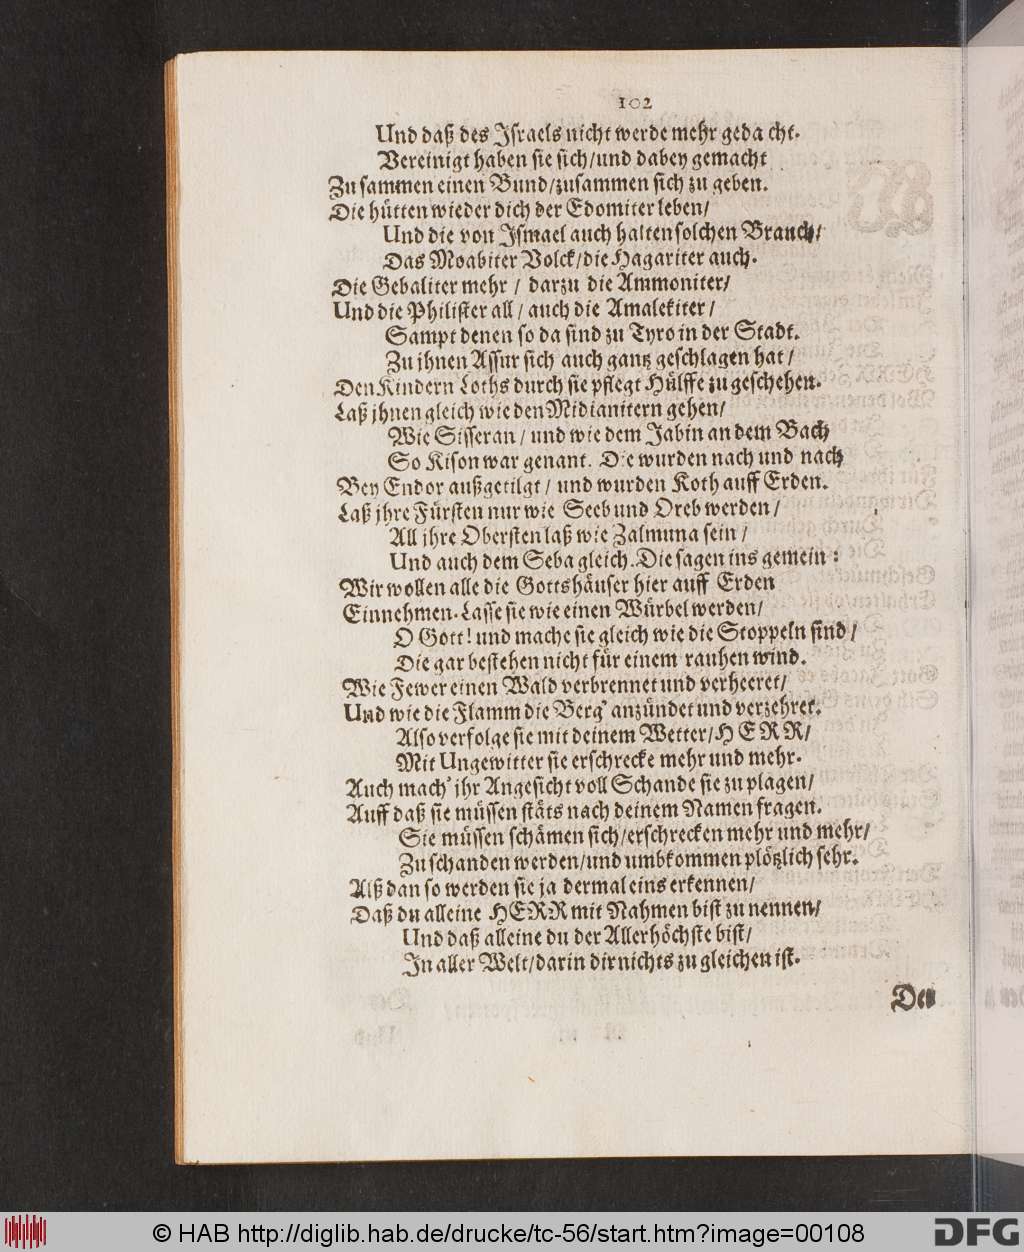 102
Und daß des Israels nicht werde mehr gedacht.
Vereinigt haben sie sich/und dabey gemacht
Zusammen einen Bund/zusammen sich zu geben.
Die hütten wieder dich der Edomiter leben/
Und die von Ismael auch halten solchen Brauch/
Das Moabiter Volck/die Hagariter auch.
Die Gebaliter mehr / darzu die Ammoniter/
Und die Philister all / auch die Amalekiter /
Sampt denen so da sind zu Tyro in der Stadt.
Zu jhnen Assur sich auch gantz geschlagen hat /
Den Kindern Loths durch sie pflegt Hülffe zu geschehen.
Laß jhnen gleich wie den Midianitern gehen/
Wie Sisseran / und wie dem Jabin an dem Bach
So Kison war genant. Die wurden nach und nach
Bey Endor außgetilgt / und wurden Koth auff Erden.
Laß jhre Fürsten nur wie Seeb und Oreb werden /
All jhre Obersten laß wie Zalmuna sein /
Und auch dem Seba gleich. Die sagen ins gemein :
Wir wollen alle die Gottshäuser hier auff Erden
Einnehmen. Lasse sie wie einen Würbel werden/
O Gott! und mache sie gleich wie die Stoppeln sind /
Die gar bestehen nicht für einem rauhen wind.
Wie Fewer einen Wald verbrennet und verheeret/
Und wie die Flamm die Berg' anzündet und verzehret.
Also verfolge sie mit deinem Wetter/HERR/
Mit Ungewitter sie erschrecke mehr und mehr.
Auch mach' jhr Angesicht voll Schande sie zu plagen/
Auff daß sie müssen stäts nach deinem Namen fragen.
Sie müssen schämen sich/erschrecken mehr und mehr/
Zu schanden werden/und umbkommen plötzlich sehr.
Alß dan so werden sie ja dermaleins erkennen/
Daß du alleine HERR mit Nahmen bist zu nennen/
Und daß alleine du der Allerhöchste bist/
In aller Welt/darin dir nichts zu gleichen ist.
Den
© HAB http://diglib.hab.de/drucke/tc-56/start.htm?image=00108
DFG